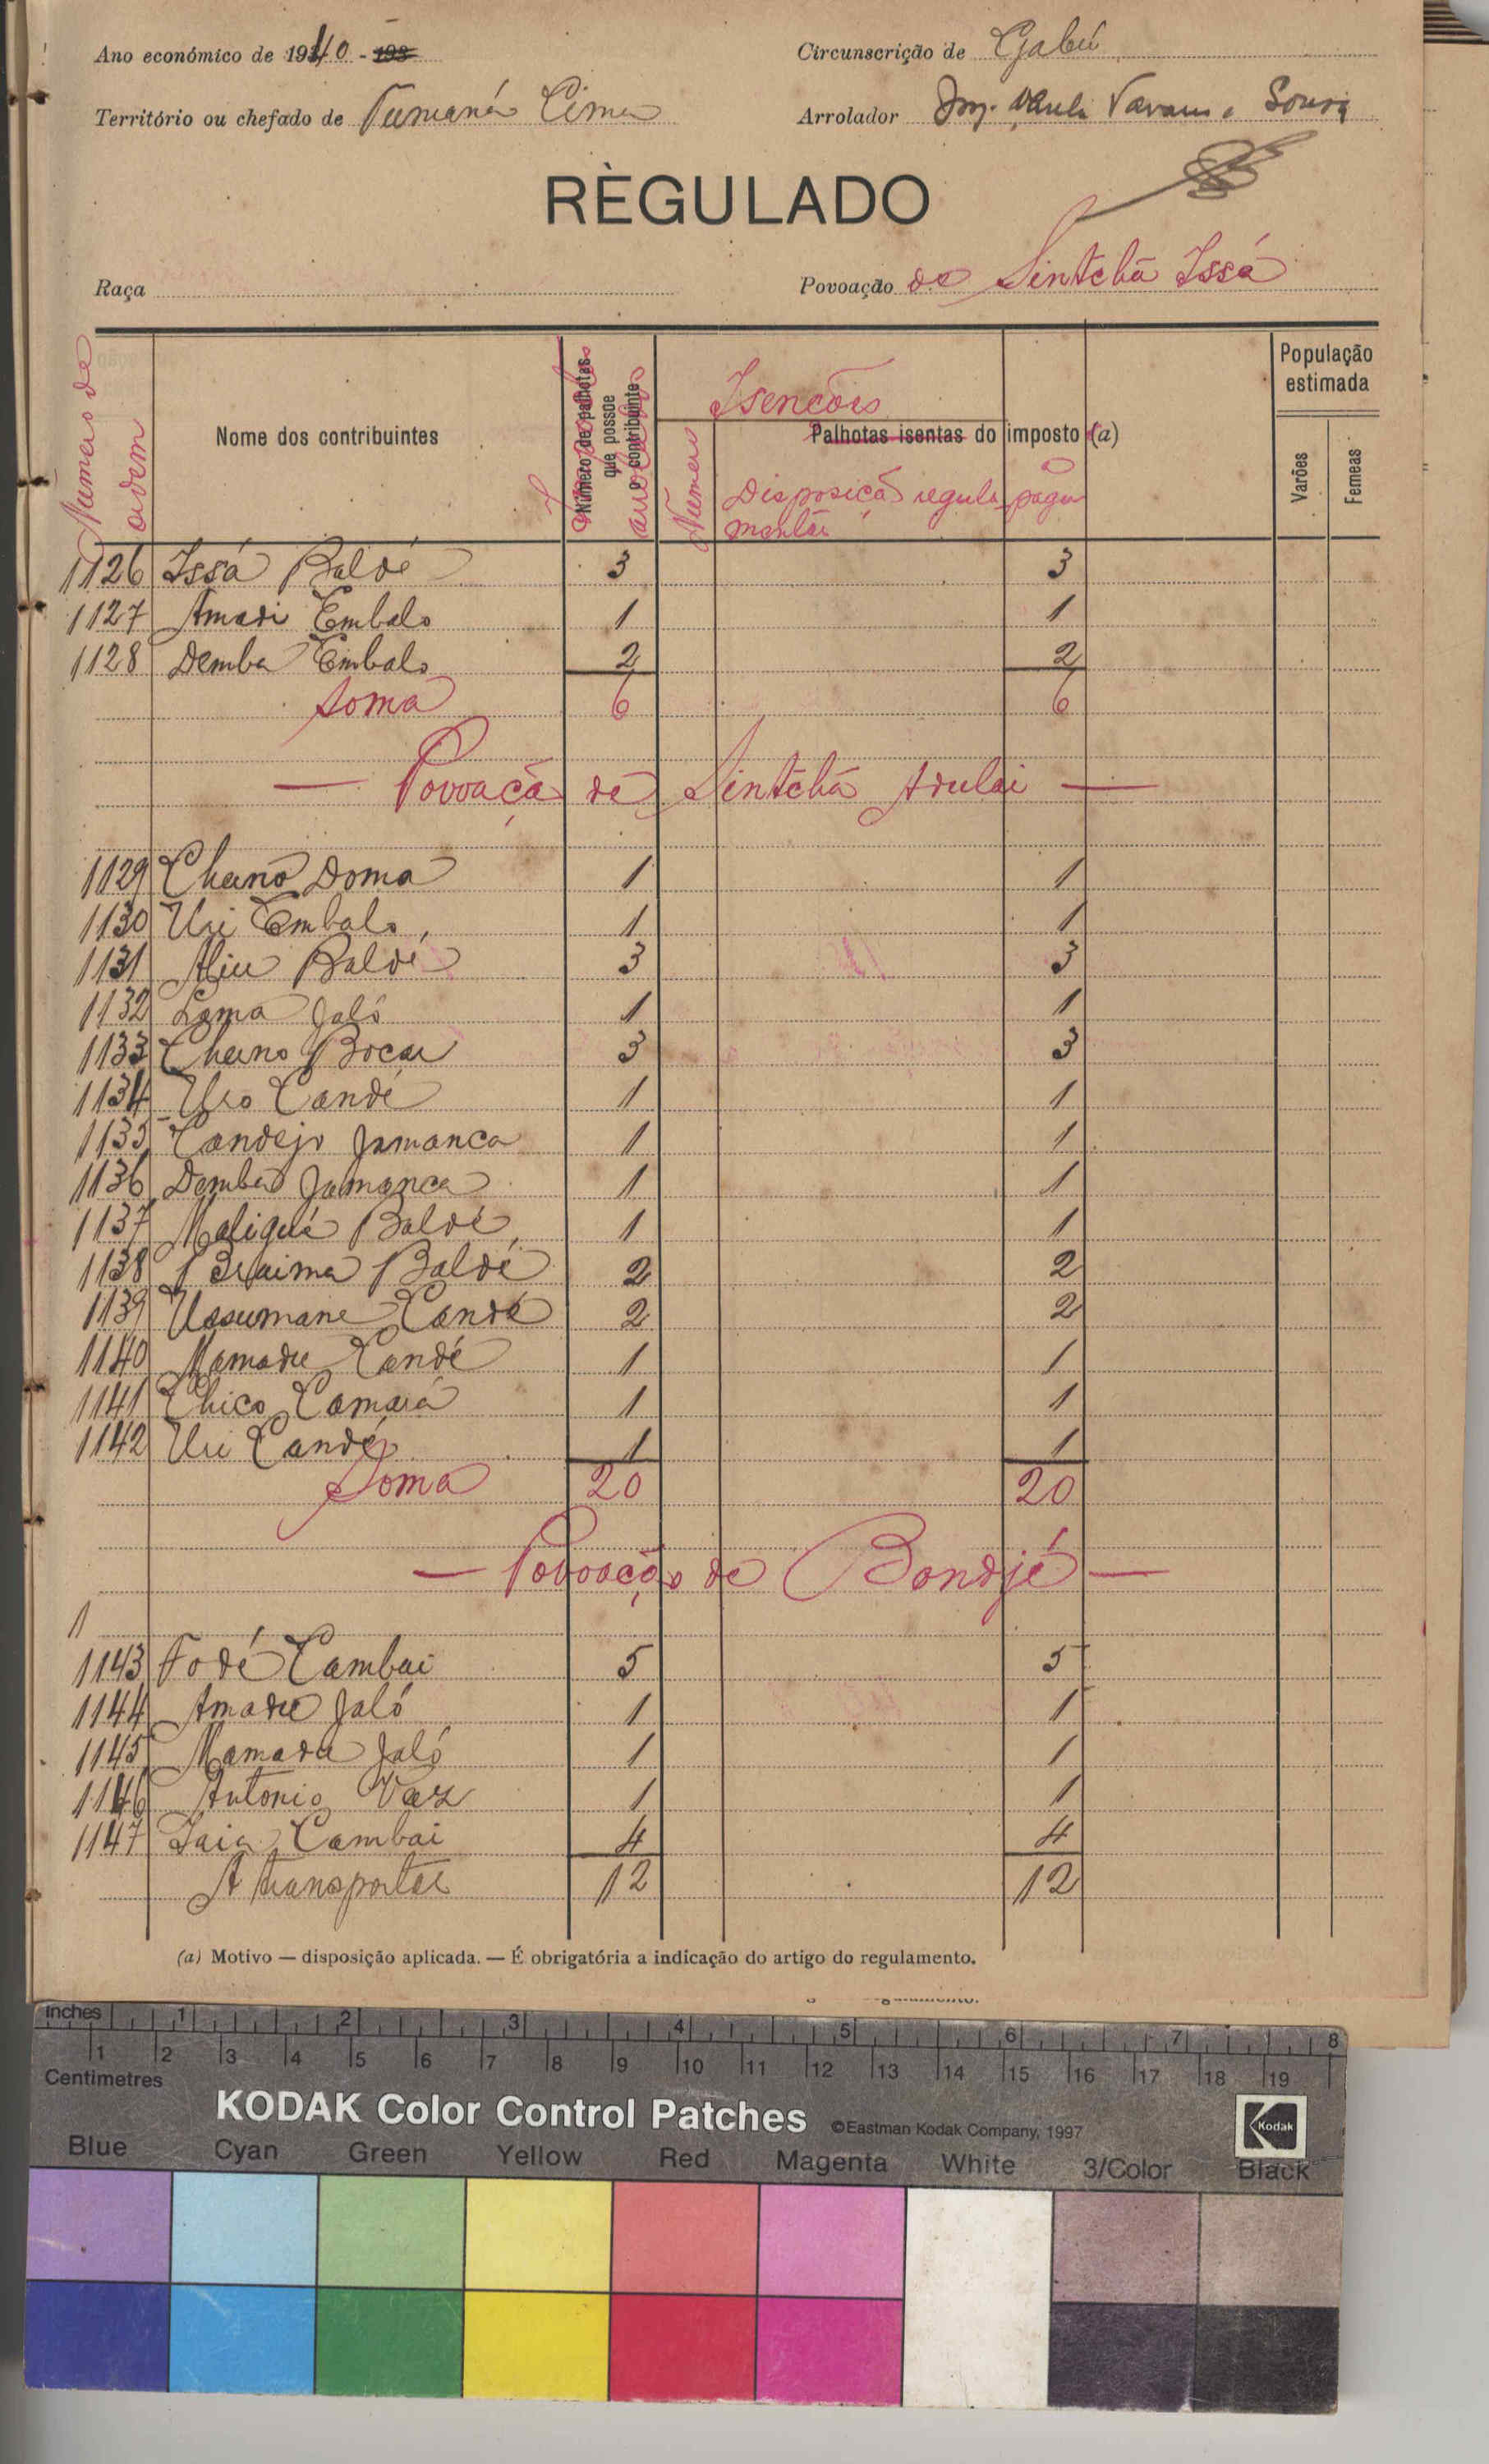 Ano económico de 1940 - 193
Circunscrição de Gabú
Território ou chefado de Tumaná Cima
Arrolador Sousa
RÈGULADO
Raça
Povoação de Sintchã Issá
Numero de ordem
Nome dos contribuintes
Número de palhotas que possue o contribuinte
Isenções
Palhotas isentas do imposto (a)
Numero
Disposição regula
mentar
a pagar
População estimada
Varões
Femeas
1126 Issá Baldé 3 3
1127 Amadi Embalo 1 1
1128 Demba Embalo 2 2
Soma 6 6
— Povoaçã de Sintchã Adulai —
1129 Cherno Doma 1 1
1130 Uri Embalo 1 1
1131 Aliu Baldé 3 3
1132 Lama Jaló 1 1
1133 Cherno Bocar 3 3
1134 Uro Candé 1 1
1135 Candejo Jamanca 1 1
1136 Demba Jamanca 1 1
1137 Maliqué Baldé 1 1
1138 Braima Baldé 2 2
1139 Ussumane Candé 2 2
1140 Mamadu Candé 1 1
1141 Chico Camará 1 1
1142 Uri Candé 1 1
Soma 20 20
— Povoação de Bondjé —
1
1143 Fodé Cambai 5 5
1144 Amadu Jaló 1 1
1145 Mamadu Jaló 1 1
1146 Antonio Vaz 1 1
1147 Iaia Cambai 4 4
A transportar 12 12
(a) Motivo — disposição aplicada. — É obrigatória a indicação do artigo do regulamento.
inches 1 2 3 4 5 6 7 8
1 2 3 4 5 6 7 8 9 10 11 12 13 14 15 16 17 18 19
Centimetres
KODAK Color Control Patches ©Eastman Kodak Company, 1997 Kodak
Blue Cyan Green Yellow Red Magenta White 3/Color Black